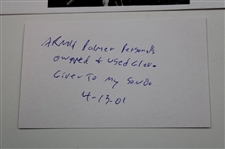 Palmer Personal
owned & used Glove
Given To My Son
4-13-01